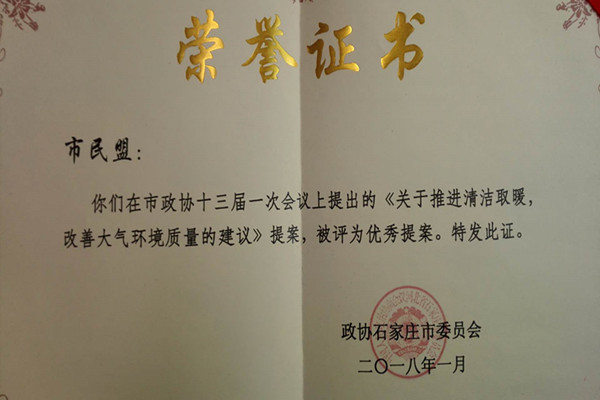 荣誉证书
市民盟：
你们在市政协十三届一次会议上提出的《关于推进清洁取暖，
改善大气环境质量的建议》提案，被评为优秀提案。特发此证。
政协石家庄市委员会
二〇一八年一月